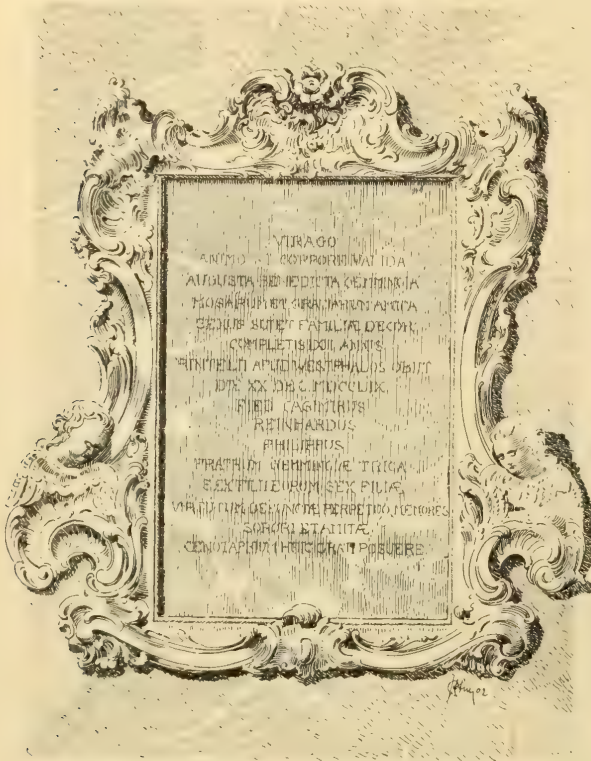 VIRAGO
ANIMO ET CORPORE VALIDA
AUGUSTA BENEDICTA GEMMINGIA
MUSARUM ET GRATIARUM AMICA
SEXUS SUI ET FAMILIÆ DECUS
COMPLETIS LXII ANNIS
RINTELII APUD WESTPHALOS OBIIT
DIE XX DEC. MDCCLIX.
REINHARDUS
PHILIPPUS
FRATRUM GEMMINGIÆ TRIGA
SEX FILII EORUM SEX FILIÆ
VIRTUTUM DEFUNCTÆ PERPETUO MEMORES
SORORI ET AMITÆ
CENOTAPHIUM HOC GRATI POSUERE